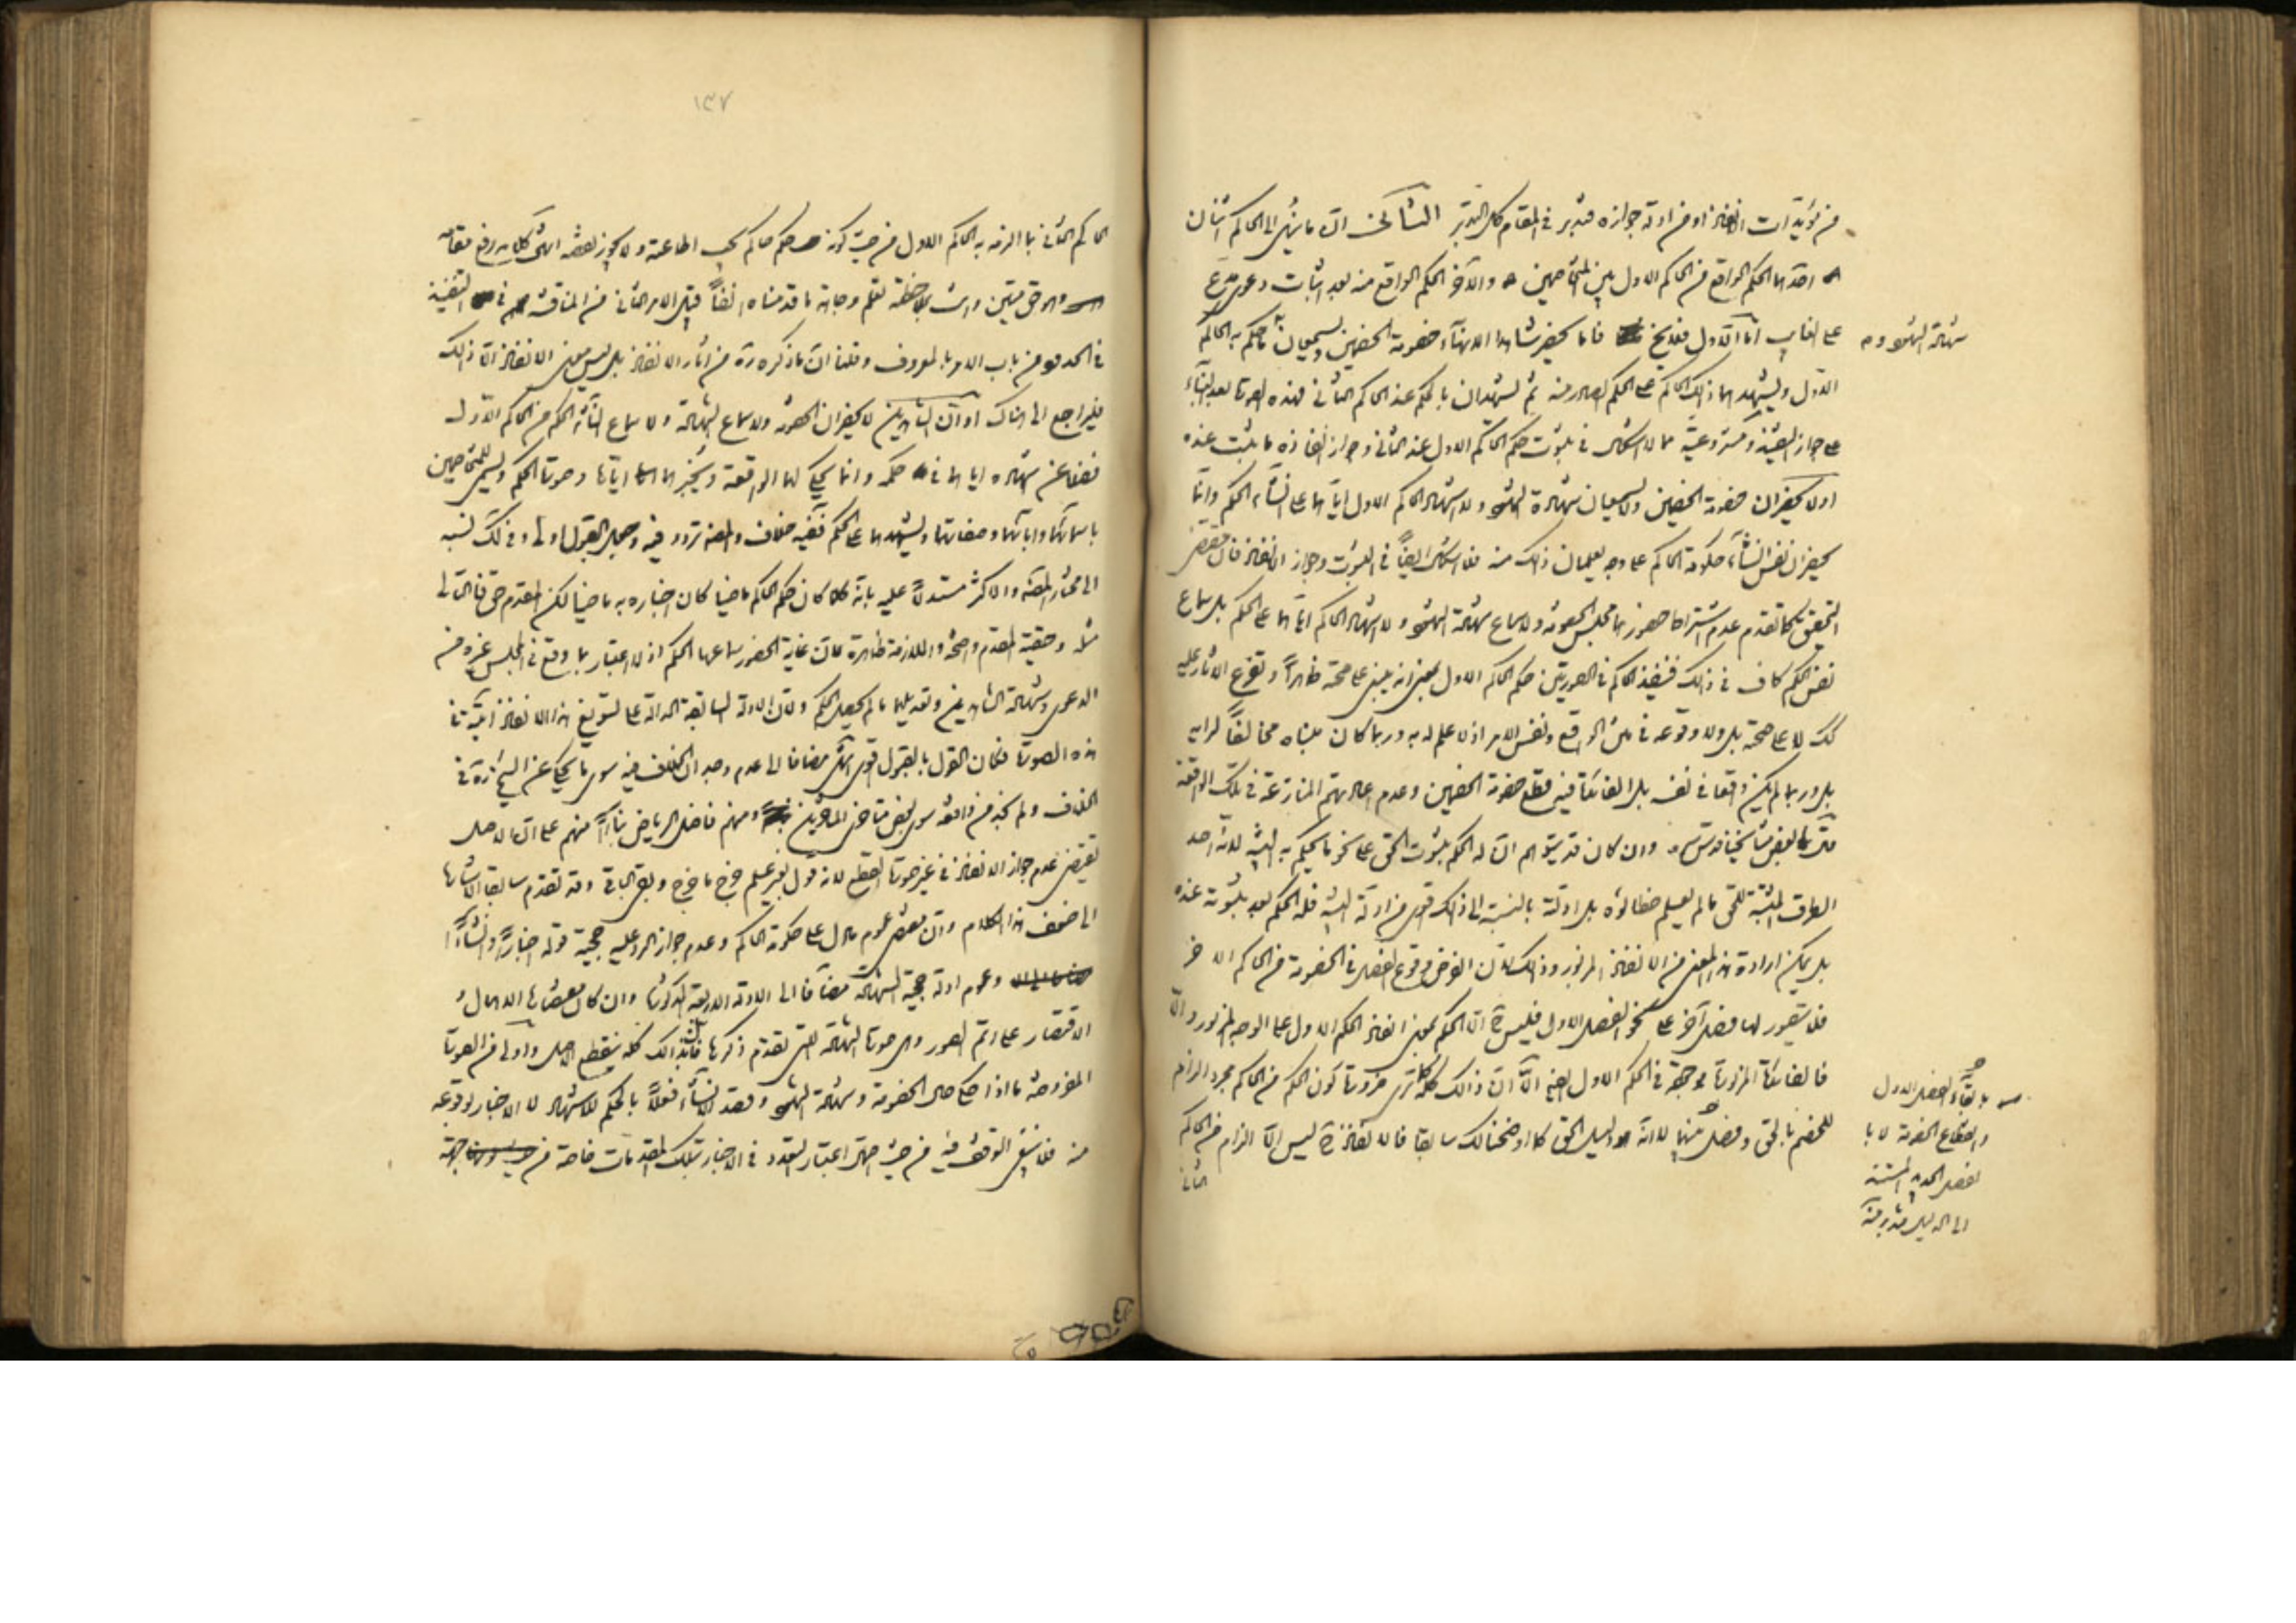 من مؤيدات الانفاذ او من ادلة جوازه فتدبر في المقام كل التدبر الثالث ان ما ينهى الى الحاكم اثنان
احدهما الحكم الواقع من الحاكم الاول بين المتخاصمين والآخر الحكم الواقع منه بعد اثبات دعوى مدع
على الغايب اما الاول فلا يخ فاما يحضر شاهدا الانهاء خصومة الخصمين ويسمعان ما حكم به الحاكم
شهادة الشهود و
الاول ويشهدهما ذلك الحاكم على الحكم الصادر منه ثم يشهدان بالحكم عند الحاكم الثاني فهذه الصورة بعد البناء
على جواز التنفيذ ومشروعيته مما لا اشكال في ثبوت حكم الحاكم الاول عند الثاني وجواز انفاذه ما يثبت عنده
او لا يحضران خصومة الخصمين ولا يسمعان شهادة الشهود ولا اشهاد الحاكم الاول اياهما على انشاء الحكم وانما
يحضران نفس انشاء حكومة الحاكم على وجه يعلمان ذلك منه فلا اشكال ايضاً في الثبوت وجواز الانفاذ فان مقتضى
التحقيق كما تقدم عدم اشتراط حضورهما مجلس الخصومة ولا سماع شهادة الشهود ولا اشهاد الحاكم اياهما على الحكم بل سماع
نفس الحكم كاف في ذلك فينفذ الحاكم في الصورتين حكم الحاكم الاول بمعنى انه يبنى على صحته ظاهراً وتفرع الآثار عليه
لا على صحته بل ولا وقوعه في متن الواقع ونفس الامر اذ لا علم له به وربما كان مبناه مخالفاً لرايه
بل وربما لم يكن واقعا في نفسه بل الفائدة فيه قطع خصومة الخصمين وعدم اعادتهم المنازعة في تلك الواقعة
بعض مشايخنا قدس سره وان كان قد يتوهم ان له الحكم بثبوت الحق على نحو ما يحكم به البينة لانه احد
الطرق المثبتة للحق ما لم يعلم خطاؤه بل ادلته بالنسبة الى ذلك اقوى من ادلة البينة فله الحكم بعد ثبوته عنده
بل يمكن ارادة هذا المعنى من الانفاذ المزبور وذلك لان الفرض وقوع الفصل في الخصومة من الحاكم الآخر
فلا يتصور لها فصل آخر على نحو الفصل الاول فليس ح الا الحكم بمعنى انفاذ الحكم الاول على الوجه المزبور والا
فالفائدة المزبورة موجودة في الحكم الاول ايضا الا ان ذلك كله كما ترى ضرورة كون الحكم من الحاكم مجرد الزام
للخصم بالحق وفصل بينهما لا انه دليل الحق كما اوضحناه لك سابقا فالانفاذ ح ليس الا الزام من الحاكم
الثاني
بقاء الفصل الاول
وانقطاع الخصومة لا با
لفصل الجديد المستند
الى الدليل فتدبر منه
١٣٧
الحاكم الثاني بما الزمه به الحاكم الاول من حيث كونه حكم حاكم يجب اطاعته ولا يجوز نقضه انتهى كلامه رفع مقامه
وهو حق متين وانت بملاحظته تعلم وجاهة ما قدمناه انفاً قبيل الامر الثاني من المناقشة في التنفيذ
في الحدود من باب الامر بالمعروف وقلنا ان ما ذكره ره من آثار الانفاذ بل ليس معنى الانفاذ الا ذلك
فليراجع الى هناك او ان الشاهدين لا يحضران الخصومة ولا سماع الشهادة ولا سماع انشاء الحكم من الحاكم الاول
فضلا عن اشهاده اياهما في حكمه وانما يحكي لهما الواقعة ويخبرهما اياها وصورة الحكم ويسمى المتخاصمين
باسمائهما وابائهما وصفاتهما ويشهدهما على الحكم ففيه خلاف والمصنف تردد فيه وجعل القبول اولى وفي ذلك نسبه
الى مختار المصنف والاكثر مستدلاً عليه بانه كلما كان حكم الحاكم ماضيا كان اخباره به ماضيا لكن المقدم حق فالتالي
مثله وحقية المقدم واضحة والملازمة ظاهرة فان غاية الحضور سماعهما الحكم اذ لا اعتبار بما وقع في المجلس غيره من
الدعوى وشهادة الشاهدين وتعديلهما ما لم يحصل الحكم ولان الادلة السابقة الدالة على تسويغ هذا الانفاذ آتية في
هذه الصورة فكان القول بالقبول اقوى انتهى مضافا الى عدم وجدان الخلاف فيه سوى ما يحكى عن الشيخ ره في
الخلاف ولم نجد من وافقه سوى بعض متأخري المتأخرين ومنهم فاضل الرياض بناءً منهم على ان الاصل
يقتضى عدم جواز الانفاذ في غير صورة القطع لانه قول بغير علم خرج ما خرج وبقى الباقي وقد تقدم سابقا الاشارة
الى ضعف هذا الكلام وان مقتضى عموم ما دل على حكومة الحاكم وعدم جواز الرد عليه حجية قوله اخباراً وانشاءً
وعموم ادلة حجية الشهادة مضافا الى الادلة الاربعة المذكورة وان كان مقتضاها الاهمال و
الاقتصار على اتم الصور وهي صورة الشهادة التي تقدم ذكرها فان بذلك كله ينقطع الاصل واولى من الصورة
المفروضة ما اذا حكى حال الخصومة وشهادة الشهود وقصد الانشاء فعلاً بالحكم للاشهاد لا الاخبار بوقوعه
منه فلا ينبغي التوقف فيه من حيث جهة اعتبار التعدد في الاخبار بتلك المقدمات خاصة من جهة